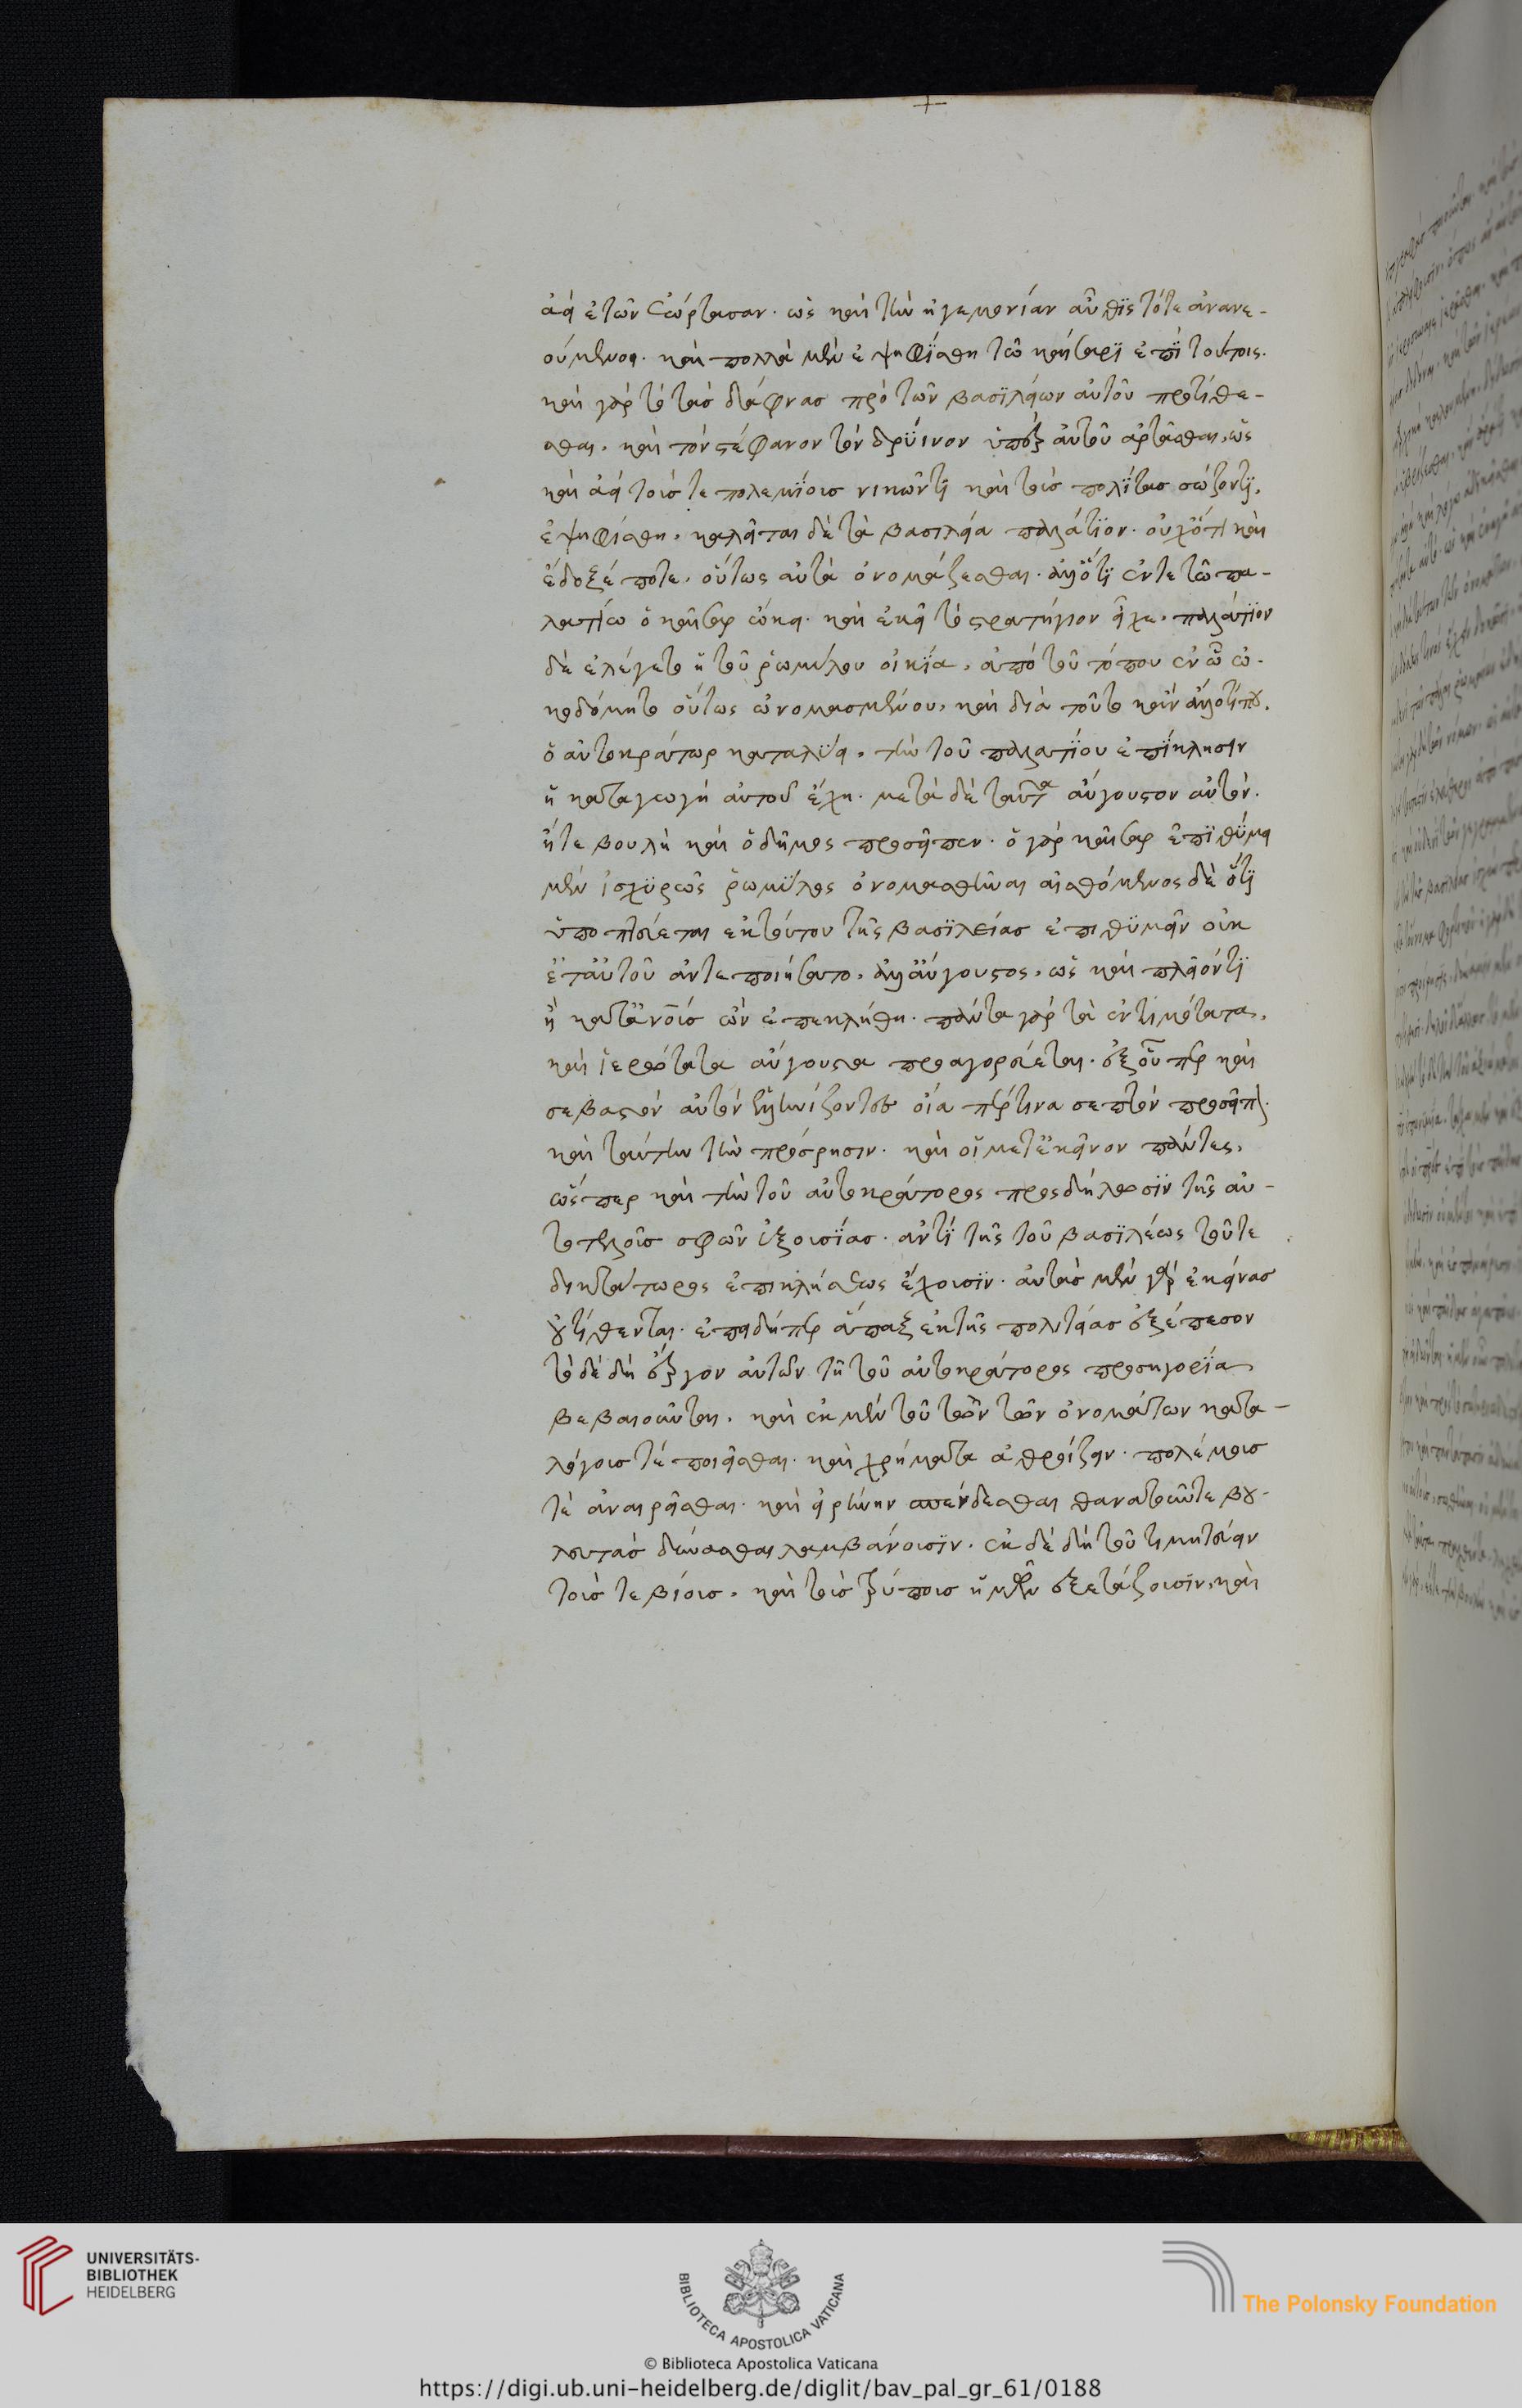 ἀεὶ ἐτῶν ἑώρτασαν. ὡς καὶ τὴν ἡγεμονίαν αὖθϊς τότε ἀνανε-
ούμενοι. καὶ πολλὰ μὲν ἐψηφΐσθη τῶ καίσαρϊ ἐπῒ τούτοις.
καὶ γὰρ τὸ τὰσ δάφνασ πρὸ τῶν βασϊλείων αὐτοῦ προτίθε-
σθαι. καὶ τὸν στέφανον τὸν δρϋινον ὑπὲρ αὐτοῦ ἀρτᾶσθαι, ὡς
καὶ ἀεὶ τούσ τε πολεμΐουσ νικῶντϊ καὶ τοὺσ πολΐτασ σώζοντϊ.
ἐψηφίσθη. καλεῖται δὲ τὰ βασιλεία παλάτϊον. οὐχ' ὅτι καὶ
ἔδοξέ ποτε. οὕτως αὐτὰ ὀνομάζεσθαι. ἀλλ' ὅτϊ ἔν τε τῶ πα-
λατίω ὁ καῖσαρ ὤκει. καὶ ἐκεῖ τὸ στρατήγιον εἶχε. παλάτϊον
δὲ ἐλέγετο ἡ τοῦ ῥωμύλου οἰκΐα. ἀπὸ τοῦ τόπου ἐν ὧ ὠ-
κοδόμητο οὕτως ὠνομασμένου. καὶ διὰ τοῦτο κἂν ἄλλοτί που.
ὁ αὐτοκράτωρ καταλύει. τὴν τοῦ παλατΐου ἐπΐκλησιν
ἡ καταγωγὴ αὐτοῦ ἔχη. μετὰ δὲ ταῦτα αὔγουστον αὐτὸν.
ἥτε βουλὴ καὶ ὁ δῆμος προσεῖπεν. ὁ γὰρ καῖσαρ ἐπϊθύμει
μὲν ἰσχϋρῶς ῥωμΰλος ὀνομασθῆναι αἰσθόμενος δὲ ὅτϊ
ὑποπτεύεται ἐκ τούτου τῆς βασϊλείασ ἐπιθϋμεῖν οὐκ
ἔτ' αὐτοῦ ἀντεποιήσατο. ἀλλ' αὔγουστος. ὡς καὶ πλεῖόν τϊ
ἢ κατ' ἀν̅ο̅υσ ὢν ἐπεκλήθη. πάντα γὰρ τὰ ἐντιμότατα.
καὶ ἱερώτατα αὔγουστα προσαγορεύεται. ἐξ οὗ περ καὶ
σεβαστὸν αὐτὸν ἑλληνίζοντεσ οἷά περ τινα σεπτὸν προσεῖπον.
καὶ ταύτην τὴν πρόσρησιν. καὶ οἱ μετ' ἐκεῖνον πάντες.
ὥσπερ καὶ τὴν τοῦ αὐτοκράτορος προσδήλωσϊν τῆς αὐ-
τοτελοῦσ σφῶν ἐξουσΐασ. ἀντϊ τῆς τοῦ βασϊλέως τοῦ τε
δικτάτωρος ἐπικλήσεως ἔχουσϊν. αὐτὰσ μὲν γὰρ ἐκείνασ
οὐ τίθενται. ἐπειδήπερ ἅπαξ ἐκ τῆς πολιτείασ ἐξέπεσον
τὸ δὲ δὴ ἔργον αὐτῶν τῆ τοῦ αὐτοκράτορος προσηγορΐα
βεβαιοῦνται. καὶ ἐκ μὲν τοῦ τῶν τῶν ὀνομάτων κατα-
λόγουσ τὲ ποιεῖσθαι. καὶ χρήματα ἀθροίζειν. πολέμουσ
τὲ ἀναιρεῖσθαι. καὶ εἰρήνην σπένδεσθαι θανατοῦντε βου-
λευτὰσ δύνασθαι λαμβάνουσϊν. ἐκ δὲ δὴ τοῦ τιμητεύειν
τοὺσ τε βίουσ. καὶ τοὺσ τρόπουσ ἡμῶν ἐξετάζουσϊν. καὶ
UNIVERSITÄTS-
BIBLIOTHEK
HEIDELBERG
BIBLIOTECA APOSTOLICA VATICANA
The Polonsky Foundation
© Biblioteca Apostolica Vaticana
https://digi.ub.uni-heidelberg.de/diglit/bav_pal_gr_61/0188